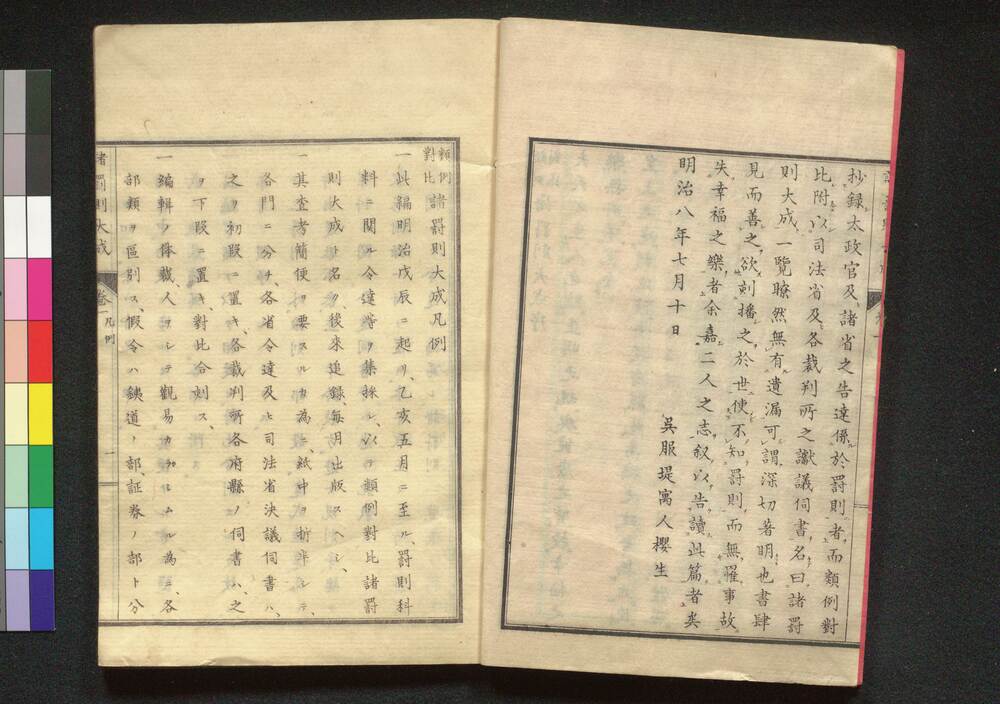 抄録太政官及諸省之告達係於罰則者而類例對
比附以司法省及各裁判所之讞議伺書名曰諸罰
則大成一覽瞭然無有遺漏可謂深切著明也書肆
見而善之欲刻播之於世使不知罰則而無罹事故
失幸福之樂者余嘉二人之志叙以告讀此篇者矣
明治八年七月十日
吳服堤寓人櫻生
類例
對比
諸罰則大成凡例
一此編明治戊辰ニ起リ乙亥五月ニ至ル罰則科
料ニ関ル令達等ヲ集採シ以テ類例對比諸罰
則大成ト名ク後來追録毎月出版スヘシ
一其査考簡便ヲ要スルカ為ニ紙中ヲ折半シテ
各門ニ分チ各省令達及ヒ司法省決議伺書ハ
之ヲ初段ニ置キ各裁判所各府縣ノ伺書ハ之
ヲ下段ニ置キ對比合刻ス
一編輯ノ体裁人ヲシテ觀易カラシムル為ニ各
部類ヲ區別ス假令ハ鐵道ノ部証券ノ部ト分
諸罰則大成
卷一
凡例
一